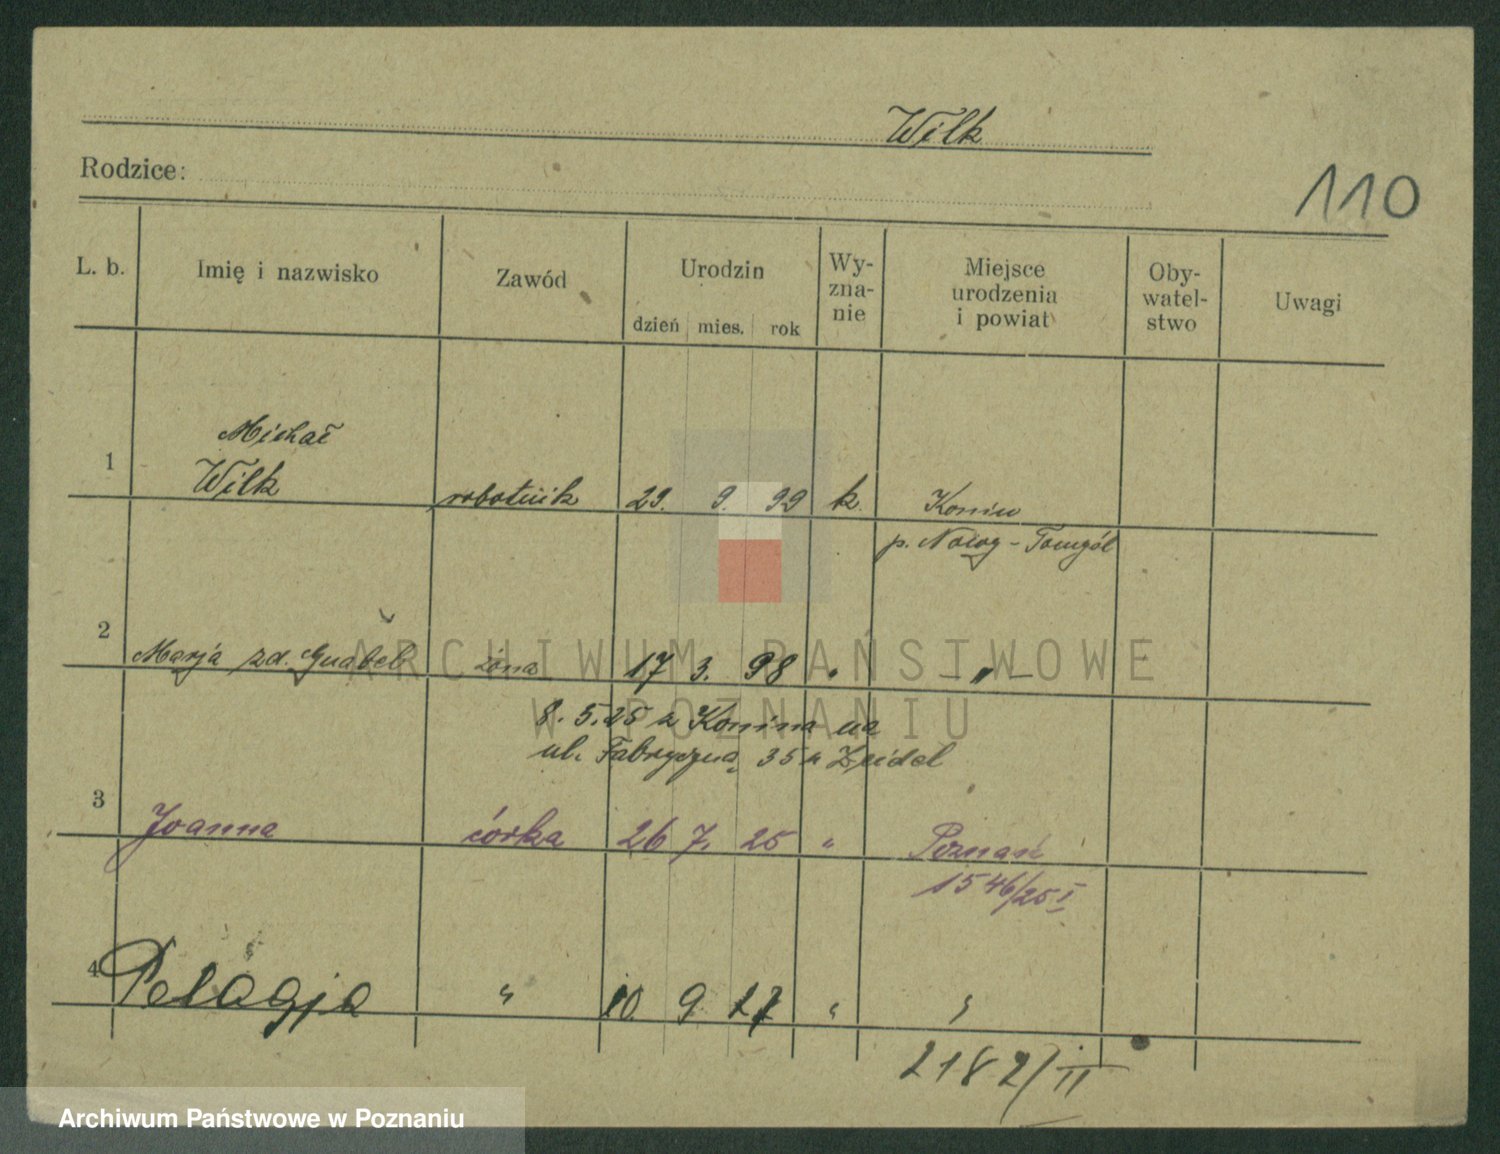 Wilk
Rodzice:
110
L. b. Imię i nazwisko Zawód Urodzin Wy-zna-nie Miejsce urodzenia i powiat Oby-watel-stwo Uwagi
dzień mies. rok
Michał
1 Wilk robotnik 29. 9. 99 k Konin
p. Nowy-Tomyśl
2 Marja zd. żona 17 3. 98 " — " —
8. 5. 25 z Konina na
ul. Fabryczną 35 u Zeidel
3 Joanna córka 26 7. 25 " Poznań
1546/25 I
4 Pelagja " 10. 9. 27 " "
2182/II
ARCHIWUM PAŃSTWOWE
W POZNANIU
Archiwum Państwowe w Poznaniu